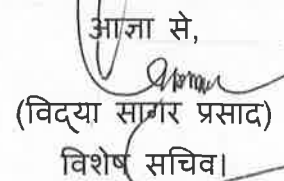 आज्ञा से,
(विद्या सागर प्रसाद)
विशेष सचिव।